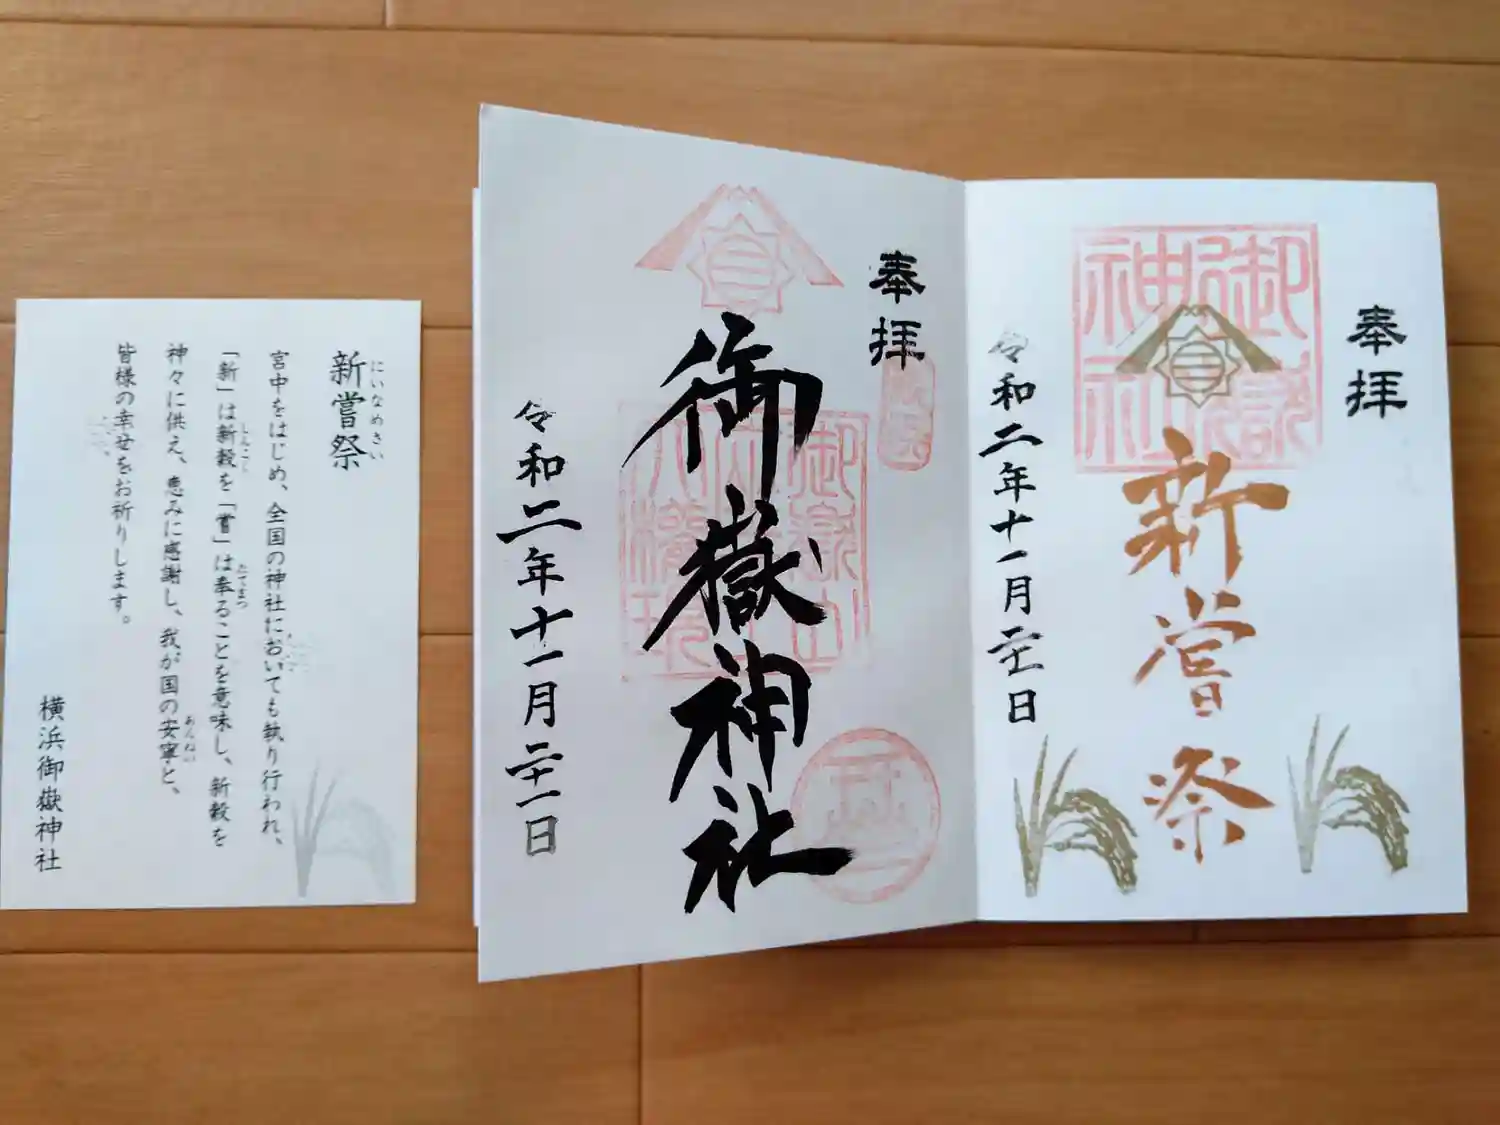 新嘗祭
にいなめさい
宮中をはじめ、全国の神社においても執り行われ、
「新」は新穀を「嘗」は奉ることを意味し、新穀を
しんこく
たてまつ
神々に供え、恵みに感謝し、我が国の安寧と、
あんねい
皆様の幸せをお祈りします。
横浜御嶽神社
奉拝
御嶽神社
令和二年十一月二十一日
奉拝
御嶽神社
新嘗祭
令和二年十一月
日